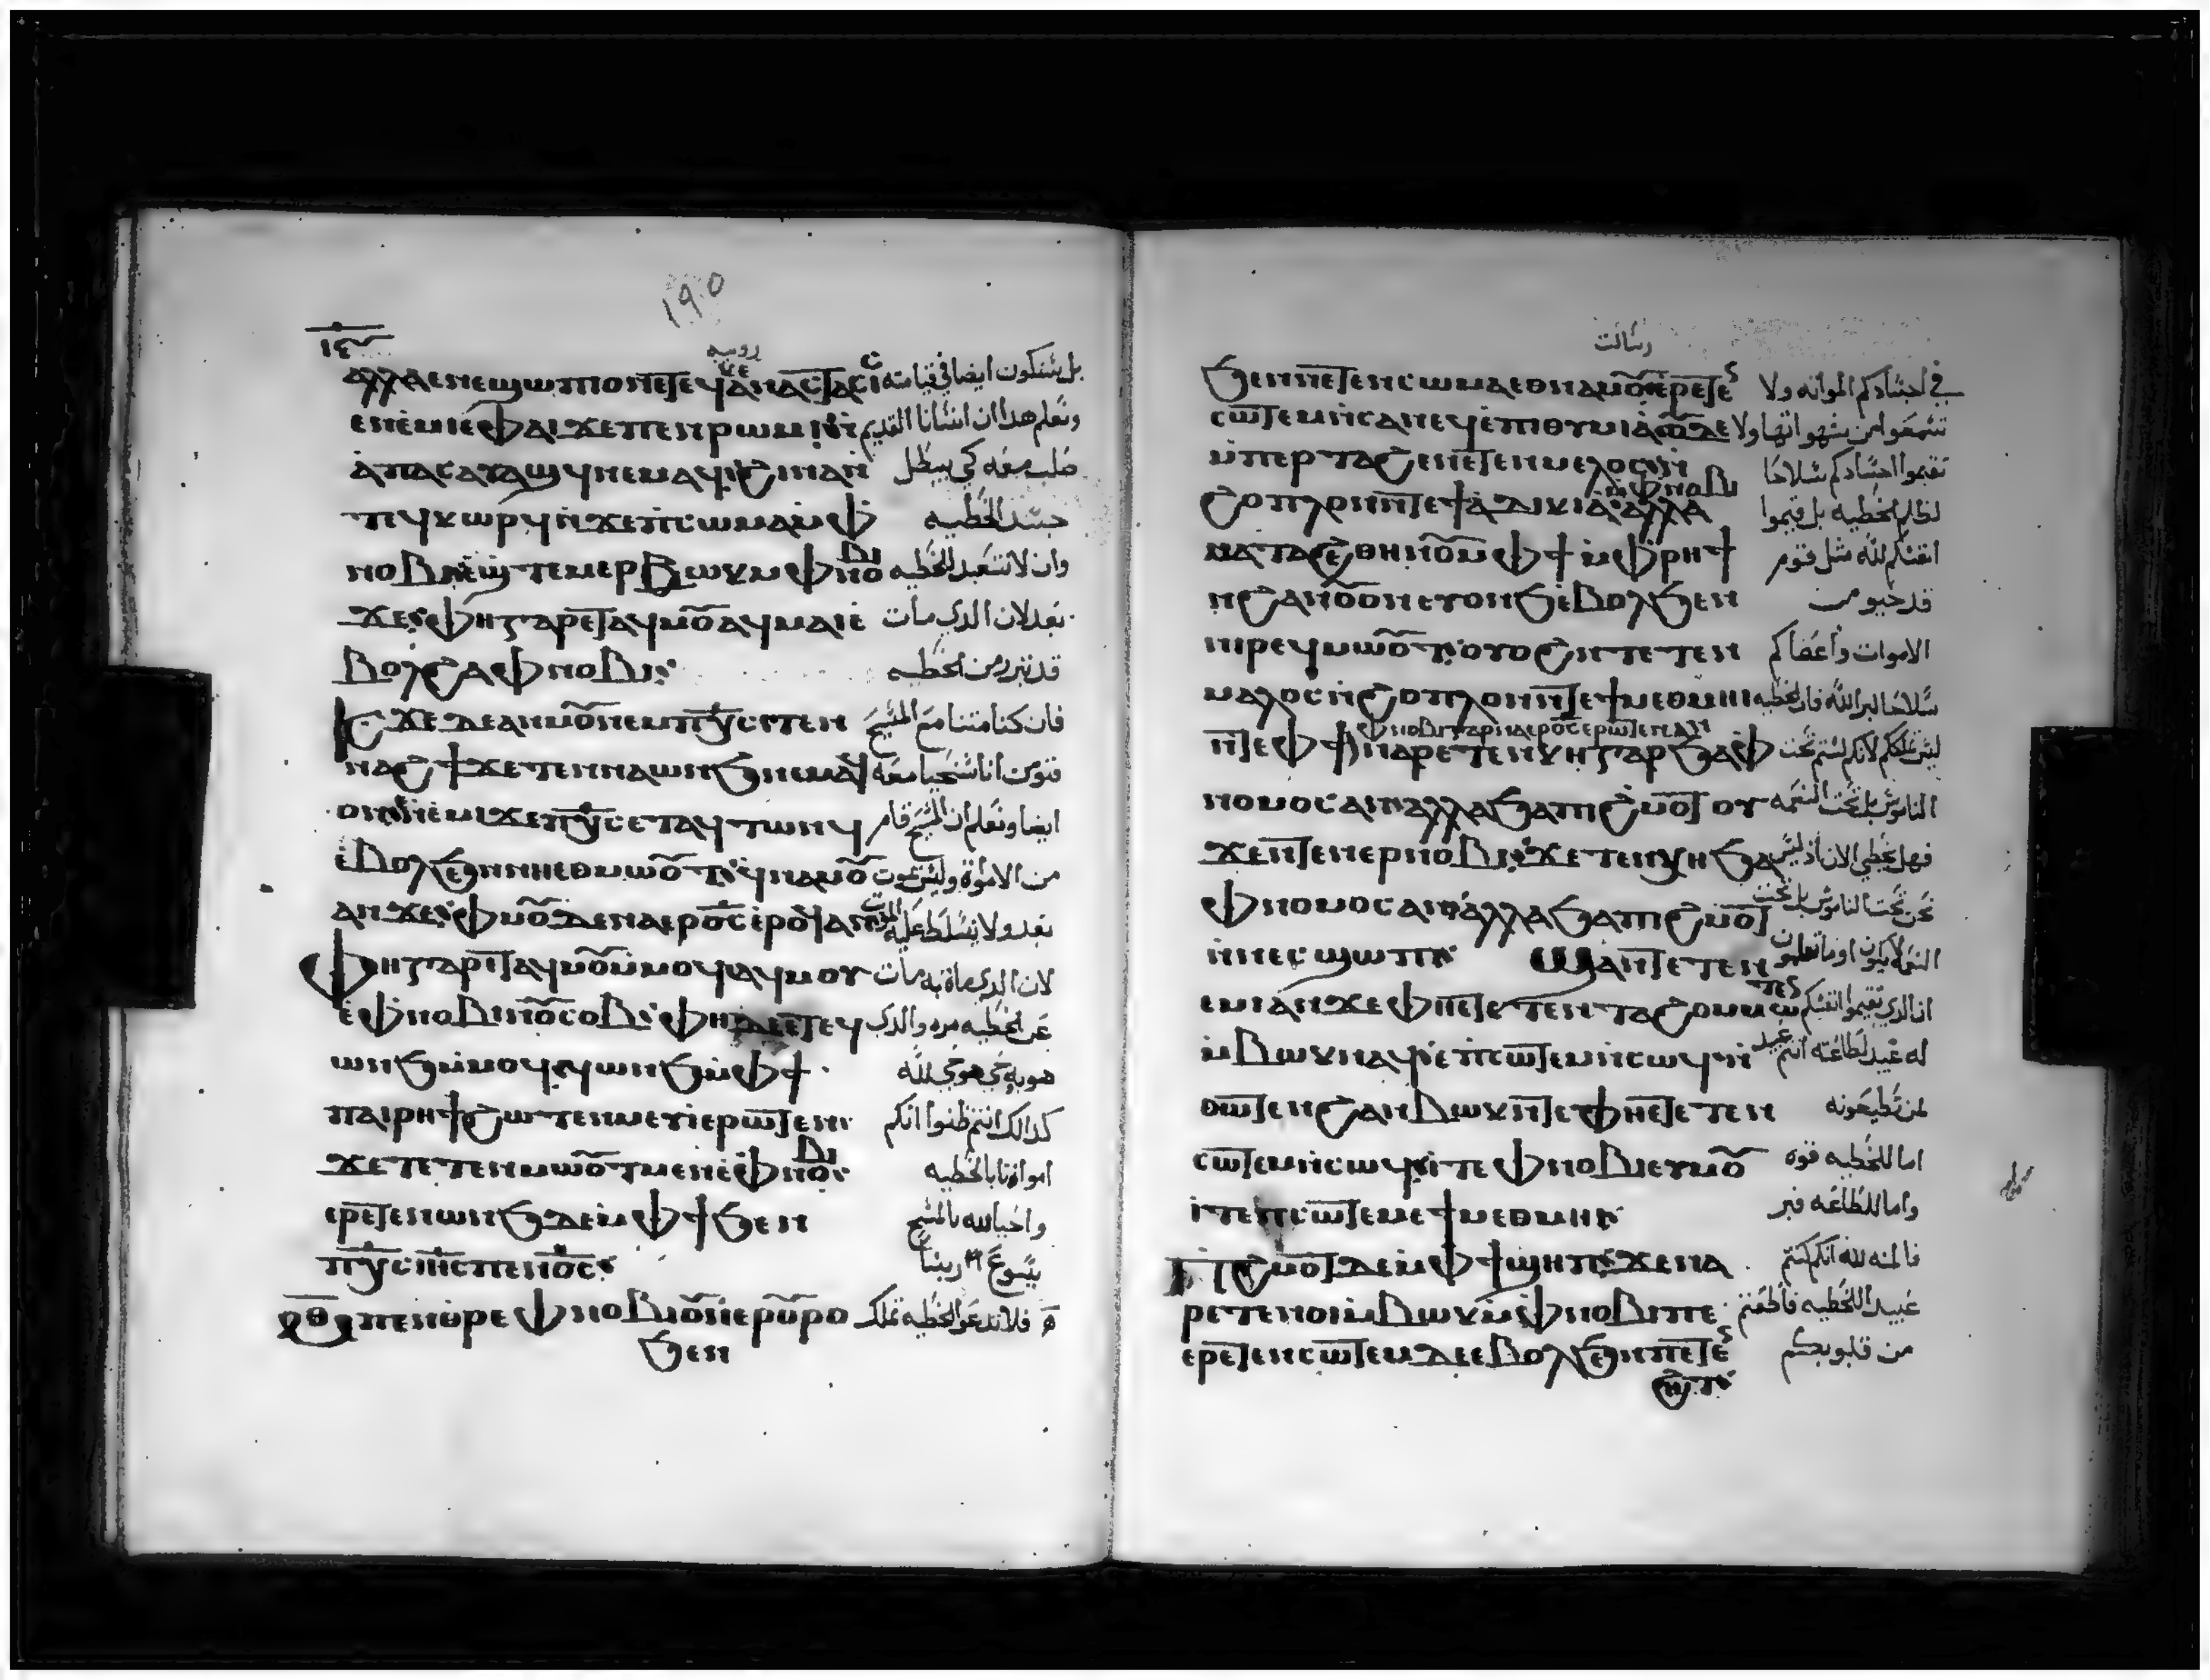 ١٩٥
رومية
ⲁⲗⲗⲁ ⲉⲛⲉϣⲱⲡⲓ ⲟⲛ ⲛ̄ⲧⲉ ⲧⲉϥⲁⲛⲁⲥⲧⲁⲥⲓⲥ بل سنكون ايضا في قيامته
ⲉⲛⲉⲙⲓ ⲉⲫⲁⲓ ϫⲉ ⲡⲉⲛⲣⲱⲙⲓ ونعلم هدا ان انساننا القديم
ⲁⲡⲁⲥ ⲁⲩⲁϣϥ ⲛⲉⲙⲁϥ ϩⲓⲛⲁ ⲛ صلب معه كي يبطل
ⲧⲉϥⲕⲱⲣϥ ⲛϫⲉ ⲡⲥⲱⲙⲁ ⲙⲫ جسد الخطيه
ⲛⲟⲃⲓ ⲉϣⲧⲉⲙⲉⲣⲃⲱⲕ ⲙⲫⲛⲟⲃⲓ وان لا نتعبد للخطيه
ϫⲉ ⲫⲏ ⲅⲁⲣ ⲉⲧⲁϥⲙⲟⲩ ⲁϥⲙⲁⲓⲉ بعد لان الدي مات
ⲃⲟⲗ ϩⲁ ⲫⲛⲟⲃⲓ قد تبرر من الخطيه
ⲓⲥϫⲉ ⲇⲉ ⲁⲛⲙⲟⲩ ⲛⲉⲙ ⲡⲭ̅ⲥ ⲧⲉⲛ فان كنا متنا مع المسيح
ⲛⲁϩϯ ϫⲉ ⲧⲉⲛⲛⲁⲱⲛϧ ⲛⲉⲙⲁϥ فنومن اننا سنحيا معه
ⲟⲛ ⲛⲉⲙⲓ ϫⲉ ⲡⲭ̅ⲥ ⲉⲧⲁϥⲧⲱⲛϥ ايضا ونعلم ان المسيح قام
ⲉⲃⲟⲗ ϧⲉⲛ ⲛⲏⲉⲑⲙⲱⲟⲩⲧ ϥⲛⲁⲙⲟⲩ من الاموات وليس يموت
ⲁⲛ ϫⲉ ⲫⲙⲟⲩ ⲇⲉ ⲛⲁⲉⲣⲟ̅ⲥ ⲉⲣⲟϥ ⲁⲛ بعد ولا يتسلط عليه الموت
ⲫⲏ ⲅⲁⲣ ⲉⲧⲁϥⲙⲟⲩ ⲙⲙⲟϥ ⲁϥⲙⲟⲩ لان الدي مات به مات
ⲉⲫⲛⲟⲃⲓ ⲛⲟⲩⲥⲟⲡ ⲫⲏ ⲇⲉ ⲉⲧⲉϥ عن الخطيه مره والدي
ⲱⲛϧ ⲙⲙⲟϥ ϥⲱⲛϧ ⲙⲫϯ هو به حي هو حي لله
ⲡⲁⲓⲣⲏϯ ϩⲱⲧⲉⲛ ⲙⲉⲩⲓ ⲉⲣⲱⲧⲉⲛ كدالك انتم ظنوا انكم
ϫⲉ ⲧⲉⲧⲉⲛⲙⲱⲟⲩⲧ ⲙⲉⲛ ⲉⲫⲛⲟⲃⲓ امواتا بالخطيه
ⲉⲣⲉⲧⲉⲛⲱⲛϧ ⲇⲉ ⲙⲫϯ ϧⲉⲛ واحيا لله بالمسيح
ⲡⲭ̅ⲥ ⲓⲏ̅ⲥ ⲡⲉⲛⲟ̅ⲥ يسوع ربنا
ⲙⲡⲉⲛⲑⲣⲉ ⲫⲛⲟⲃⲓ ⲟⲩⲛ ⲉⲣⲟⲩⲣⲟ فلا تدعوا الخطيه تملك
ϧⲉⲛ
رسالت
ϧⲉⲛ ⲡⲉⲧⲉⲛⲥⲱⲙⲁ ⲉⲑⲛⲁⲙⲟⲩ ⲉⲡⲣⲉⲧⲉ في اجسادكم المواته ولا
ⲥⲱⲧⲉⲙ ⲛⲥⲁ ⲛⲉϥⲉⲡⲓⲑⲩⲙⲓⲁ ⲟⲩⲇⲉ تسمعوا من شهواتها ولا
ⲙⲡⲉⲣⲧⲁϩⲉ ⲛⲉⲧⲉⲛⲙⲉⲗⲟⲥ تقيموا اجسادكم سلاحا
ϩⲟⲡⲗⲟⲛ ⲛⲧⲉ ϯⲁⲇⲓⲕⲓⲁ ⲙⲫⲛⲟⲃⲓ ⲁⲗⲗⲁ لظلم الخطيه بل قيموا
ⲙⲁⲧⲁϩⲉ ⲑⲏⲛⲟⲩ ⲙⲫϯ ⲙⲫⲣⲏϯ انفسكم لله مثل قوم
ⲛϩⲁⲛⲟⲩⲟⲛ ⲉⲩⲟⲛϧ ⲉⲃⲟⲗ ϧⲉⲛ قد حيو من
ⲛⲓⲣⲉϥⲙⲱⲟⲩⲧ ⲟⲩⲟϩ ⲛⲉⲧⲉⲛ الاموات واعضاكم
ⲙⲉⲗⲟⲥ ⲛϩⲟⲡⲗⲟⲛ ⲛⲧⲉ ϯⲙⲉⲑⲙⲏⲓ سلاحا لبر الله فان الخطيه
ⲫⲛⲟⲃⲓ ⲅⲁⲣ ⲛⲁⲉⲣⲟ̅ⲥ ⲉⲣⲱⲧⲉⲛ ⲁⲛ
ⲛⲧⲉ ⲫϯ ⲛⲁⲣⲉⲧⲉⲛⲭⲏ ⲅⲁⲣ ϧⲁ ⲫ ليس تملككم لانكم لستم تحت
ⲛⲟⲙⲟⲥ ⲁⲛ ⲁⲗⲗⲁ ϧⲁ ⲡⲓϩⲙⲟⲧ ⲟⲩ الناموس بل تحت النعمه
ϫⲉ ⲛⲧⲉⲛⲉⲣⲛⲟⲃⲓ ϫⲉ ⲧⲉⲛⲭⲏ ϧⲁ فهل نخطي الان اذ ليس
ⲫⲛⲟⲙⲟⲥ ⲁⲛ ⲁⲗⲗⲁ ϧⲁ ⲡⲓϩⲙⲟⲧ نحن تحت الناموس بل تحت
ⲛⲛⲉⲥϣⲱⲡⲓ ϣⲁⲛ ⲧⲉⲧⲉⲛ النعمه لا يكون اوما تعلمون
ⲉⲙⲓ ⲁⲛ ϫⲉ ⲫⲏⲉⲧⲉⲧⲉⲛⲧⲁϩⲟ ان الدي تقيموا انفسكم
ⲙⲃⲱⲕ ⲛⲁϥ ⲉⲡⲥⲱⲧⲉⲙ ⲛⲥⲱϥ له عبيد لطاعته انتم عبيد
ⲑⲱⲧⲉⲛ ϩⲁⲛⲃⲱⲕ ⲛⲧⲉ ⲫⲏⲉⲧⲉⲧⲉⲛ لمن تطيعونه
ⲥⲱⲧⲉⲙ ⲛⲥⲱϥ ⲓⲧⲉ ⲫⲛⲟⲃⲓ ⲉⲩⲙⲟⲩ اما للخطيه فوه
ⲓⲧⲉ ⲡⲥⲱⲧⲉⲙ ⲉϯⲙⲉⲑⲙⲏⲓ واما للطاعه فبر
ⲡⲓϩⲙⲟⲧ ⲇⲉ ⲙⲫϯ ϣⲏⲡ ϫⲉ ⲛⲁ فالمنه لله انكم كنتم
ⲣⲉⲧⲉⲛⲟⲓ ⲙⲃⲱⲕ ⲙⲫⲛⲟⲃⲓ ⲡⲉ عبيد اللخطيه فاطعتم
ⲉⲣⲉⲧⲉⲛⲥⲱⲧⲉⲙ ⲇⲉ ⲉⲃⲟⲗ ϧⲉⲛ ⲡⲉⲧⲉ من قلوبكم